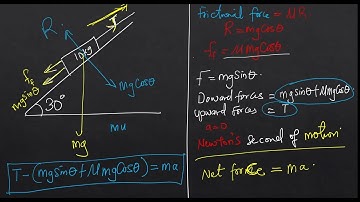 R
T
10kg
fr
mgsinθ
mgCosθ
30°
mg
mu
T-(mgsinθ+μmgCosθ)=ma
frictional force = μR
R=mgCosθ
fr = μmgCosθ
T=mgsinθ.
Doward forces = mgsinθ+μmgCosθ
upward forces = T
a=0
Newton's second of motion.
Net force = ma.